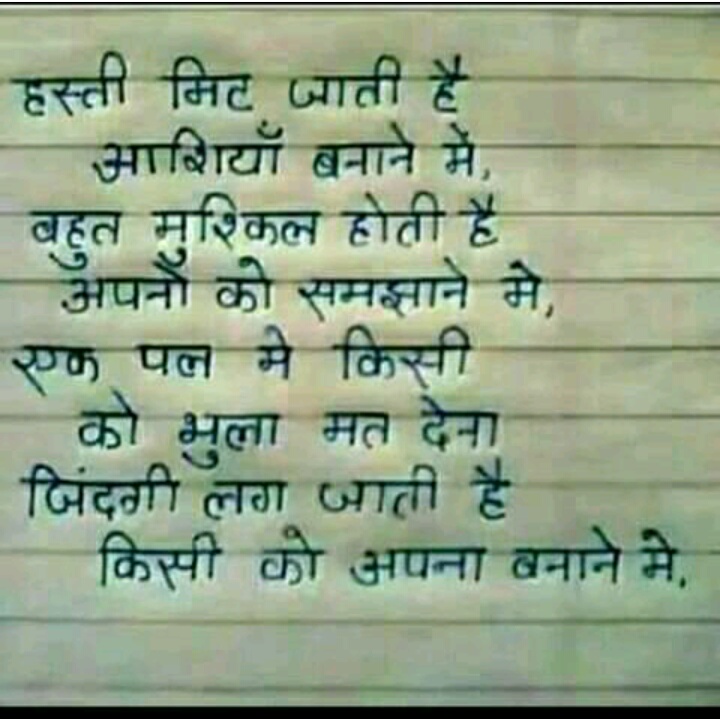 हस्ती मिट जाती है
आशियाँ बनाने मे,
बहुत मुश्किल होती है
अपनों को समझाने मे,
एक पल मे किसी
को भुला मत देना
जिंदगी लग जाती है
किसी को अपना बनाने मे.